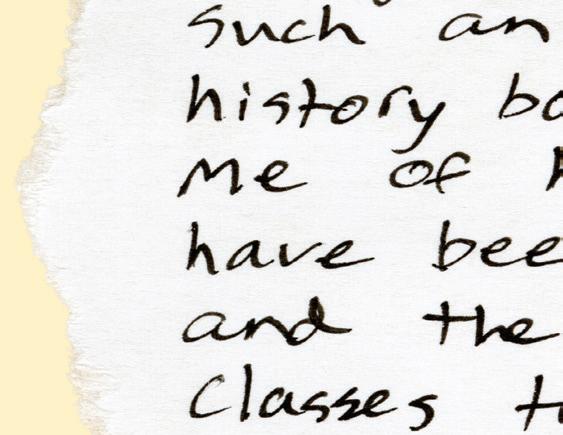 such an
history
Me of
have
and the
Classes